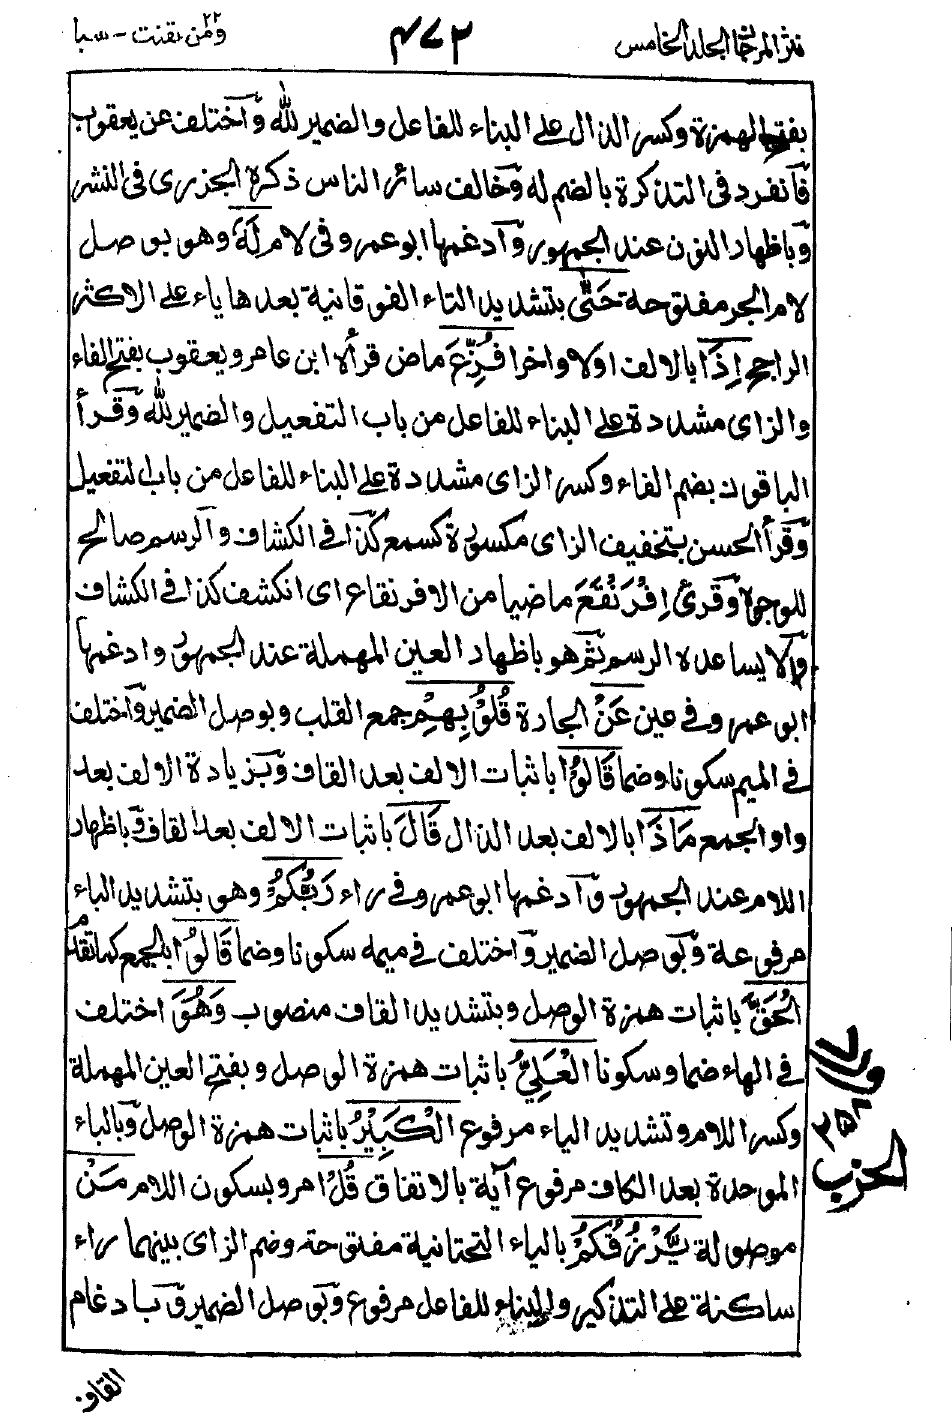 نثر المرجان المجلد الخامس
٤٧٢
ومن يقنت ٢٢ - سبا
بفتح الهمزة وكسر الذال على البناء للفاعل والضمير لله وآختلف عن يعقوب
فآنفرد فى التذكرة بالضم له وخالف سائر الناس ذكرة الجزرى فى النشر
وباظهار النون عند الجمهور وآدغمها ابو عمرو فى لام لَهٗ وهو بوصل
لام الجر مفتوحة حَتّٰى بتشديد التاء الفوقانية بعدها ياء على الاكثر
الراجح اِذَا بالالف اولا واخرا فُزِّعَ ماض قرأه ابن عامر ويعقوب بفتح الفاء
والزاى مشددة على البناء للفاعل من باب التفعيل والضمير لله وقرأ
الباقون بضم الفاء وكسر الزاى مشددة على البناء للفاعل من باب التفعيل
وقرأ الحسن بتخفيف الزاى مكسورة كسمع كذا فى الكشاف والرسم صالح
للوجوه وقرئ اِفْرَنْقَعَ ماضيا من الافرنقاع اى انكشف كذا فى الكشاف
ولا يساعده الرسم ثم هو باظهار العين المهملة عند الجمهور وادغمها
ابو عمرو فى عين عَنْ الجارة قُلُوْبِهِمْ جمع القلب وبوصل الضمير وآختلف
فى الميم سكونا وضما قَالُوْا باثبات الالف بعد القاف وبزيادة الالف بعد
واو الجمع مَاذَا بالالف بعد الذال قَالَ باثبات الالف بعد القاف وباظهار
اللام عند الجمهور وآدغمها ابو عمرو فى راء رَبُّكُمْ وهو بتشديد الباء
مرفوعة وبوصل الضمير وآختلف فى ميمه سكونا وضما قَالُوْا بالجمع كما تقدم
الْحَقَّ باثبات همزة الوصل وبتشديد القاف منصوب وَهُوَ اختلف
فى الهاء ضما وسكونا الْعَلِيُّ باثبات همزة الوصل وبفتح العين المهملة
وكسر اللام وتشديد الياء مرفوع الْكَبِيْرُ باثبات همزة الوصل وبالباء
الموحدة بعد الكاف مرفوع آية بالاتفاق قُلْ امر وبسكون اللام مَنْ
موصولة يَّرْزُقُكُمْ بالياء التحتانية مفتوحة وضم الزاى بينهما راء
ساكنة على التذكير والبناء للفاعل مرفوع وبوصل الضمير وبادغام
الحزب
القاف